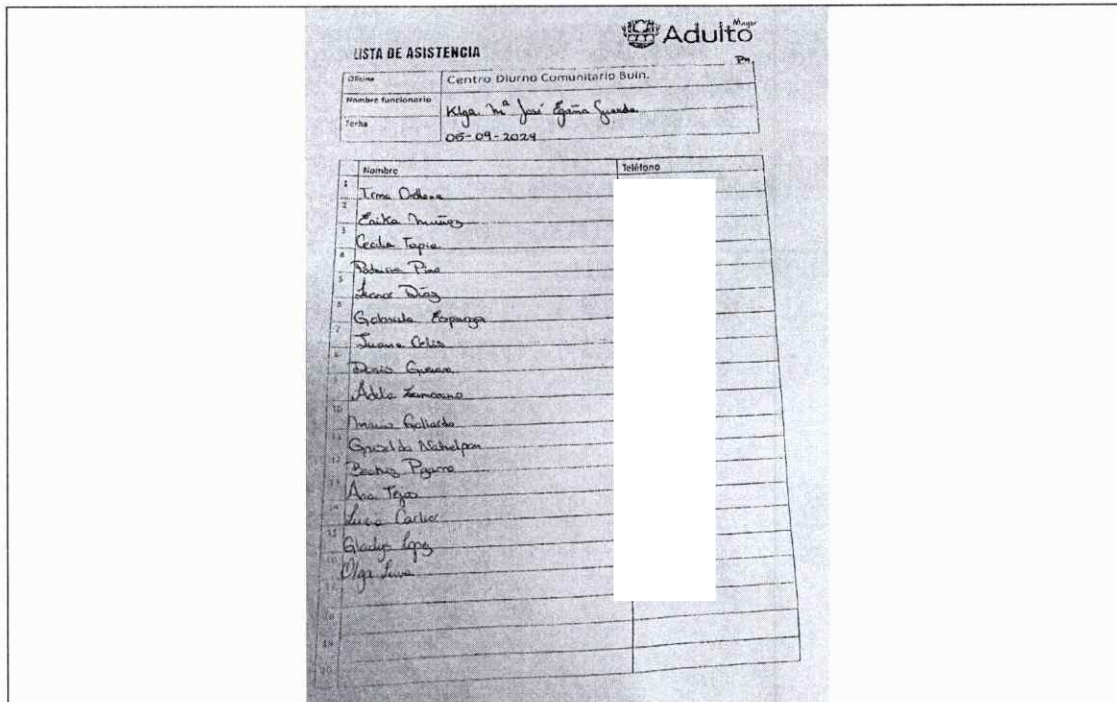 Adulto
Mayor
LISTA DE ASISTENCIA
Pm.
Oficina Centro Diurno Comunitario Buin.
Nombre funcionario Klga. Mª José Egaña
Fecha 05-09-2024
Nombre Teléfono
1 Irma
2 Erika Muñoz
3 Cecilia Tapia
4 Patricia Pino
5 Leonor Díaz
6 Gabriela Esparza
7 Juana Celis
8 Doris Guerra
9 Adela Zamorano
10 María Gallardo
11 Griselda Nahuelpan
12 Beatriz
13 Ana Tejos
14 Lucia
15 Gladys López
16 Olga Leiva
17
18
19
20